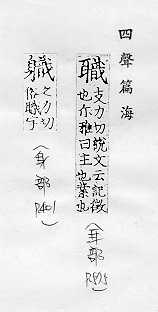 四聲篇海
職
支力切說文云記微
也尒雅曰主也業也
(耳部
P.125
軄
之力切
俗職字
(身部
P.401